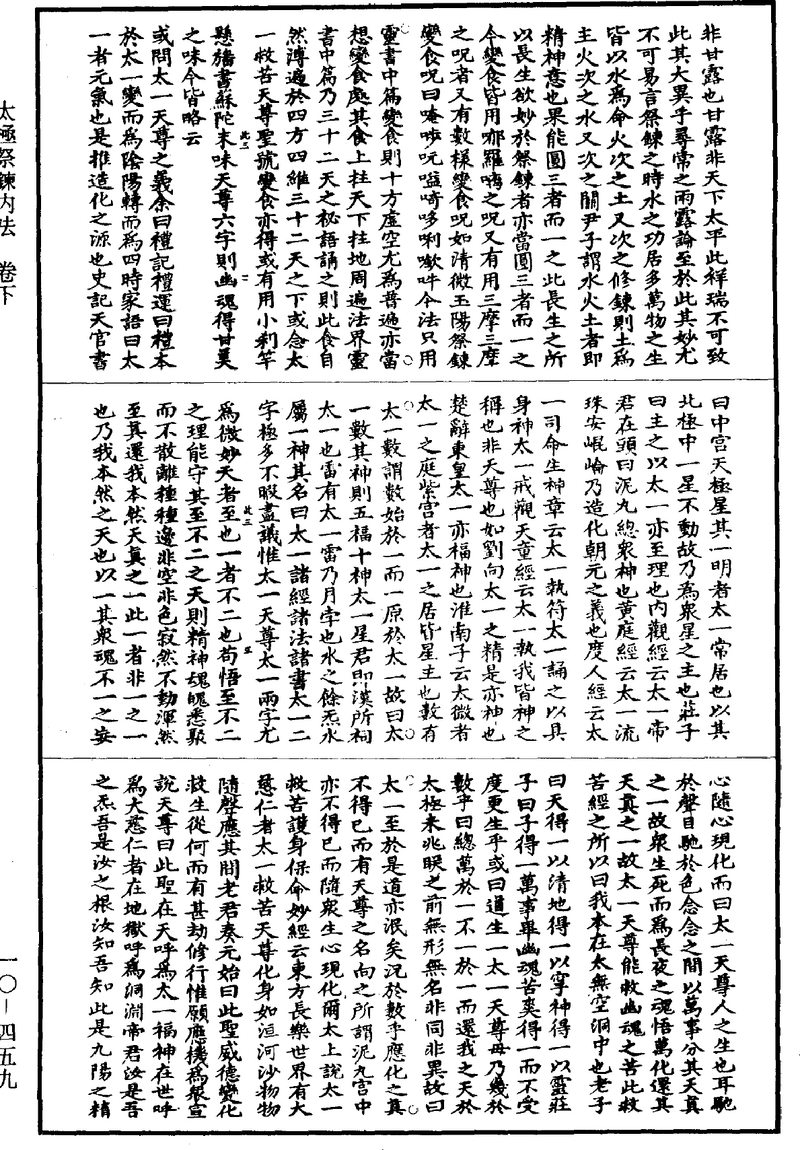 太極祭鍊內法　卷下
非甘露也甘露非天下太平此祥瑞不可致
此其大異乎尋常之雨露論至於此其妙尤
不可易言祭鍊之時水之功居多萬物之生
皆以水為命火次之土又次之修鍊則土為
主火次之水又次之關尹子謂水火土者即
精神意也果能圓三者而一之此長生之所
以長生欲妙於祭鍊者亦當圓三者而一之
今變食皆用哪羅嗨之呪又有用三摩三摩
之呪者又有數樣變食呪如清微玉陽祭鍊
變食呪曰唵
靈書中篇變食則十方虛空尤為普遍亦當
想變食處其食上拄天下拄地周遍法界靈
書中篇乃三十二天之秘語誦之則此食自
然溥遍於四方四維三十二天之下或念太
一救苦天尊聖號變食亦得或有用小刹竿
懸旛書蘇陀末味天尊六字則幽魂得甘美
之味今皆略云
或問太一天尊之義余曰禮記禮運曰禮本
於太一變而為陰陽轉而為四時家語曰太
一者元氣也是推造化之源也史記天官書
曰中宮天極星其一明者太一常居也以其
北極中一星不動故乃為衆星之主也莊子
曰主之以太一亦至理也內觀經云太一帝
君在頭曰泥丸總衆神也黄庭經云太一流
珠安崐崘乃造化朝元之義也度人經云太
一司命生神章云太一執符太一誦之以具
身神太一戒觀天童經云太一執我皆神之
稱也非天尊也如劉向太一之精是亦神也
楚辭東皇太一亦福神也淮南子云太微者
太一之庭紫宮者太一之居皆星主也數有
太一數謂數始於一而一原於太一故曰太
一數其神則五福十神太一星君即漢所祠
太一也雷有太一雷乃月孛也水之餘炁水
屬一神其名曰太一諸經諸法諸書太一二
字極多不暇盡議惟太一天尊太一兩字尤
為微妙天者至也一者不二也苟悟至不二
之理能守其至不二之天則精神魂魄悉聚
而不散離種種邊非空非色寂然不動渾然
至其還我本然天真之一此一者非一之一
也乃我本然之天也以一其衆魂不一之妄
心隨心現化而曰太一天尊人之生也耳馳
於聲目馳於色念念之間以萬事分其天真
之一故衆生死而為長夜之魂悟萬化還其
天真之一故太一天尊能救幽魂之苦此救
苦經之所以曰我本在太無空洞中也老子
曰天得一以清地得一以寧神得一以靈莊
子曰子得一萬事畢幽魂苦奭得一而不受
度更生乎或曰道生一太一天尊毋乃幾於
數乎曰總萬於一不一於一而還我之天於
太極未兆朕之前無形無名非同非異故曰
太一至於是道亦泯矣況於數乎應化之真
不得已而有天尊之名向之所謂泥丸宮中
亦不得已而隨衆生心現化爾太上說太一
救苦護身保命妙經云東方長樂世界有大
慈仁者太一救苦天尊化身如洹河沙物物
隨聲應其問老君奏元始曰此聖威德變化
救生從何而有甚劫修行惟願應機為衆宣
說天尊曰此聖在天呼為太一福神在世呼
為大慈仁者在地獄呼為洞淵帝君汝是吾
之炁吾是汝之根汝知吾知此是九陽之精
一〇—四五九